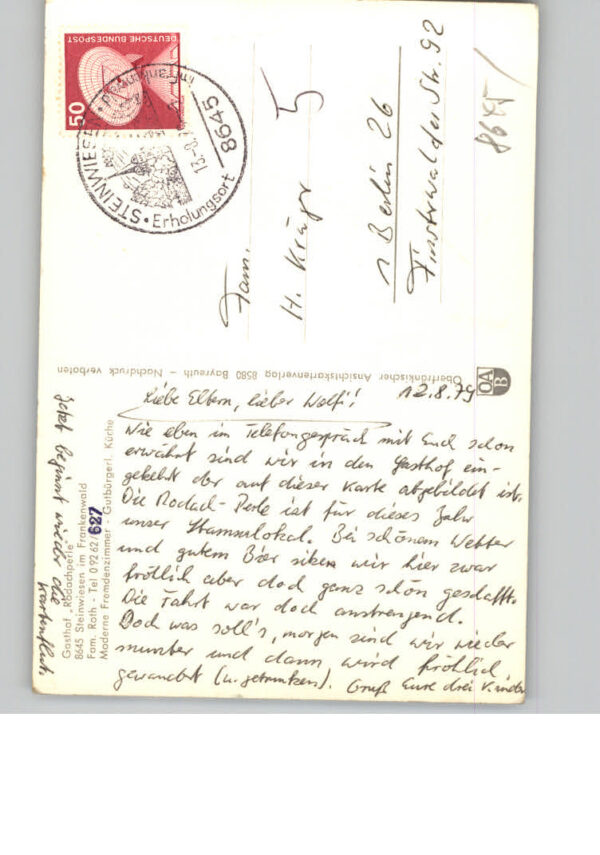 12.8.79
Liebe Eltern, lieber Wolfi!
Wie eben im Telefongespräch mit Euch schon
erwähnt sind wir in den Gasthof ein-
gekehrt der auf dieser Karte abgebildet ist.
Die Rodach-Perle ist für dieses Jahr
unser Stammlokal. Bei schönem Wetter
und gutem Bier sitzen wir hier zwar
fröhlich aber doch ganz schön geschafft.
Die Fahrt war doch anstrengend.
Doch was soll's, morgen sind wir wieder
munter und dann wird fröhlich
gewandert (u. getrunken). Gruß Eure drei Kinder
Jetzt beginnt wieder die
Kartenflut.
Gasthof "Rodachperle"
8645 Steinwiesen im Frankenwald
Fam. Roth - Tel 0 92 62/687
Moderne Fremdenzimmer - Gutbürgerl. Küche
Oberfränkischer Ansichtskartenverlag 8580 Bayreuth - Nachdruck verboten
OA
B
Fam.
H. Krüger
1 Berlin 26
Finsterwalder Str. 92
5
8645
DEUTSCHE BUNDESPOST
50
8645
STEINWIESEN
Erholungsort
im Frankenwald
13.-8.